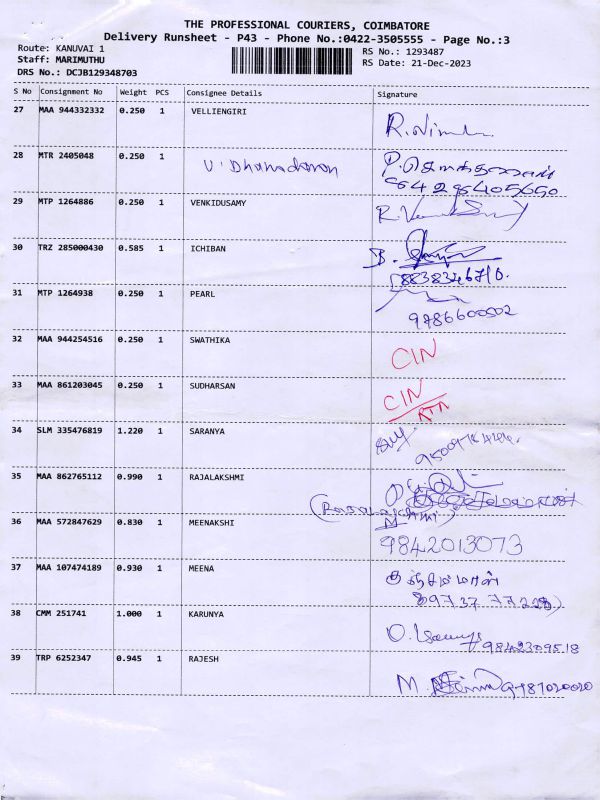 THE PROFESSIONAL COURIERS, COIMBATORE
Delivery Runsheet - P43 - Phone No.:0422-3505555 - Page No.:3
Route: KANUVAI 1
RS No.: 1293487
Staff: MARIMUTHU
RS Date: 21-Dec-2023
DRS No.: DCJB129348703
S No Consignment No Weight PCS Consignee Details Signature
27 MAA 944332332 0.250 1 VELLIENGIRI
28 MTR 2405048 0.250 1
29 MTP 1264886 0.250 1 VENKIDUSAMY
30 TRZ 285000430 0.585 1 ICHIBAN
31 MTP 1264938 0.250 1 PEARL
9786600502
32 MAA 944254516 0.250 1 SWATHIKA CIN
33 MAA 861203045 0.250 1 SUDHARSAN CIN
RTN
34 SLM 335476819 1.220 1 SARANYA
35 MAA 862765112 0.990 1 RAJALAKSHMI
36 MAA 572847629 0.830 1 MEENAKSHI
9842013073
37 MAA 107474189 0.930 1 MEENA
38 CMM 251741 1.000 1 KARUNYA
39 TRP 6252347 0.945 1 RAJESH